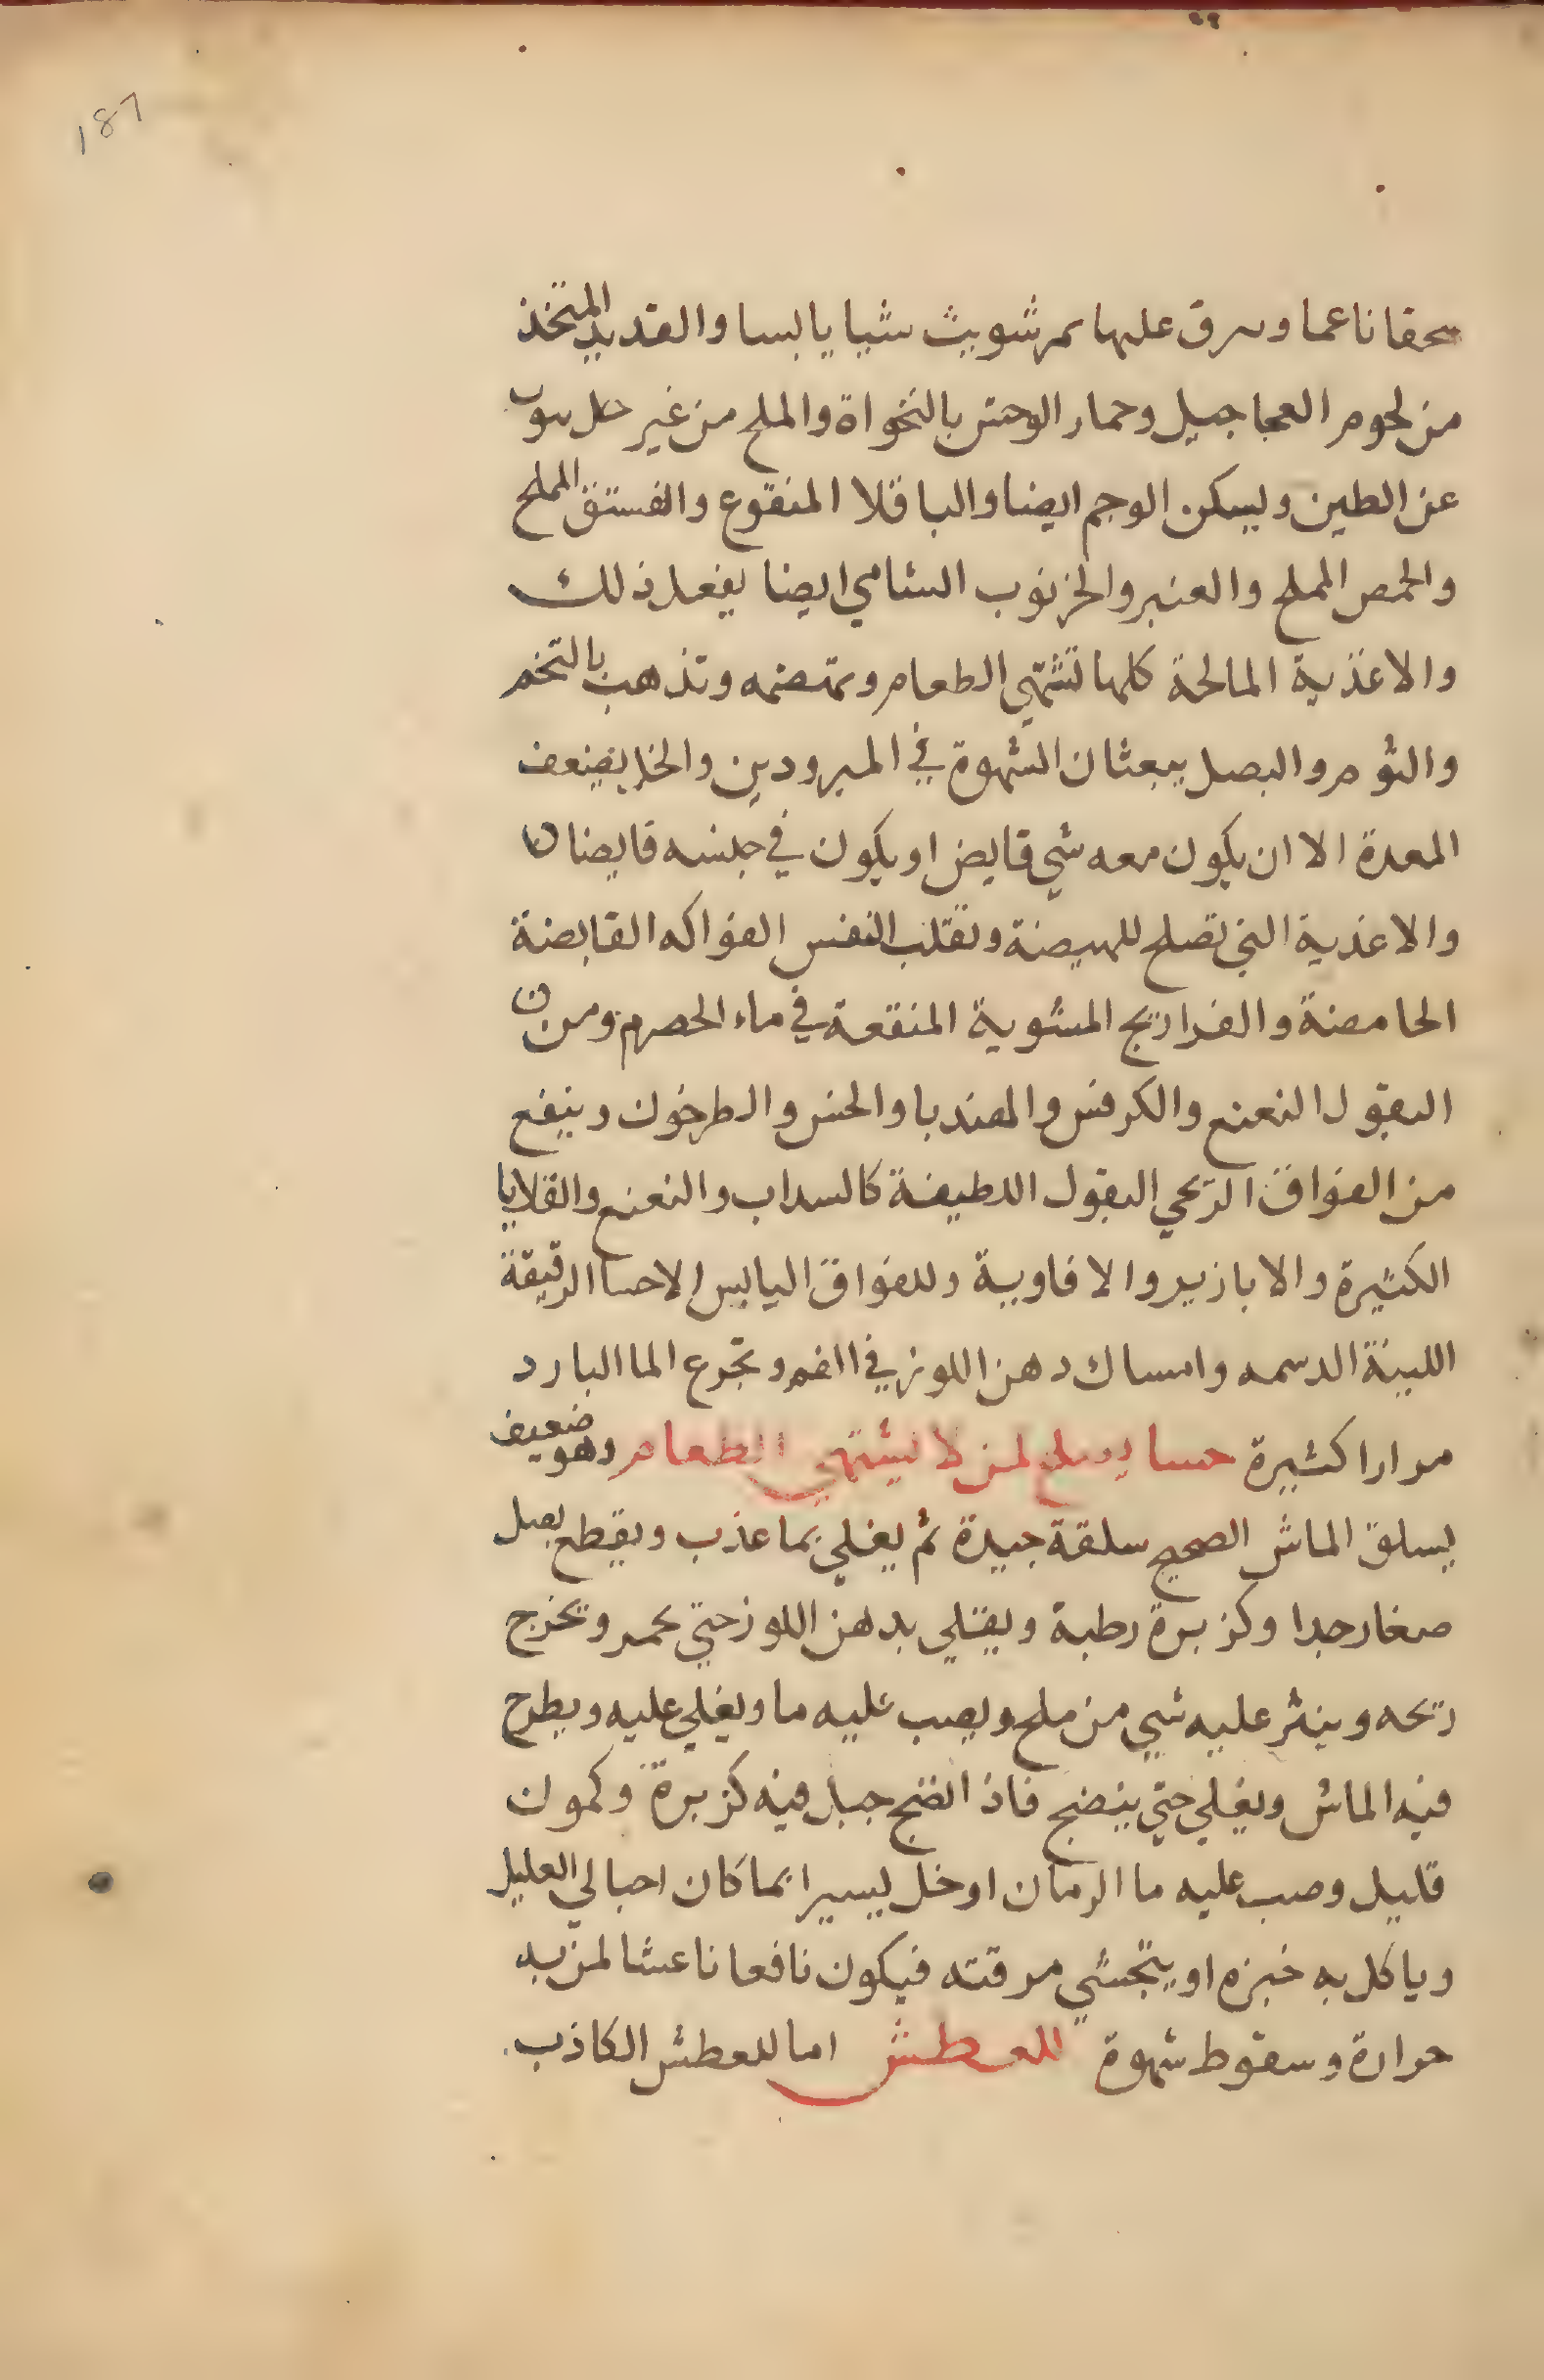 187
سحقا ناعما وىىرق عليها ثم شويت شيا يابسا والقديد المتخذ
من لحوم العجاجيل وحمار الوحش بالنخواة والملح من غير خل ينوب
عن الطين ويسكن الوحم ايضا والباقلا المنقوع والفستق المملح
والحمص المملح والعنبر والخرنوب الشامي ايضا يفعل ذلك
والاغذية المالحة كلها تشهي الطعام وتهضمه وتذهب بالتخم
والثوم والبصل يبعثان الشهوة في المبرودين والخل يضعف
المعدة الا ان يكون معه شي قابض او يكون في جنسه قابضا
والاغذية التي تصلح للهيضة وتقلب النفس الفواكه القابضة
الحامضة والفراريج المشوية المنقعة في ماء الحصرم ومن
البقول النعنع والكرفس والهندبا والخس والطرخون وينفع
من الفواق الريحي البقول اللطيفة كالسداب والنعنع والقلايا
الكثيرة والابازير والافاوية وللفواق اليابس الاحسا الرقيقة
اللينة الدسمه وامساك دهن اللوز في الفم وتجرع الما البارد
مرارا كثيرة حسا يصلح لمن لا يشتهي الطعام وهو ضعيف
يسلق الماش الصحيح سلقة جيدة ثم يغلي بما عذب ويقطع بصل
صغار جدا وكزبرة رطبة ويقلي بدهن اللوز حتي يحمر وتخرج
ريحه وينثر عليه شي من ملح ويصب عليه ما ويغلي عليه ويطرح
فيه الماش ويغلي حتي ينضج فاذا نضج جعل فيه كزبرة وكمون
قليل وصب عليه ما الرمان او خل يسير ايما كان احب الي العليل
وياكل به خبزه او يتحسي مرقته فيكون نافعا ناعشا لمن به
حرارة وسقوط شهوة للعطش اما للعطش الكاذب